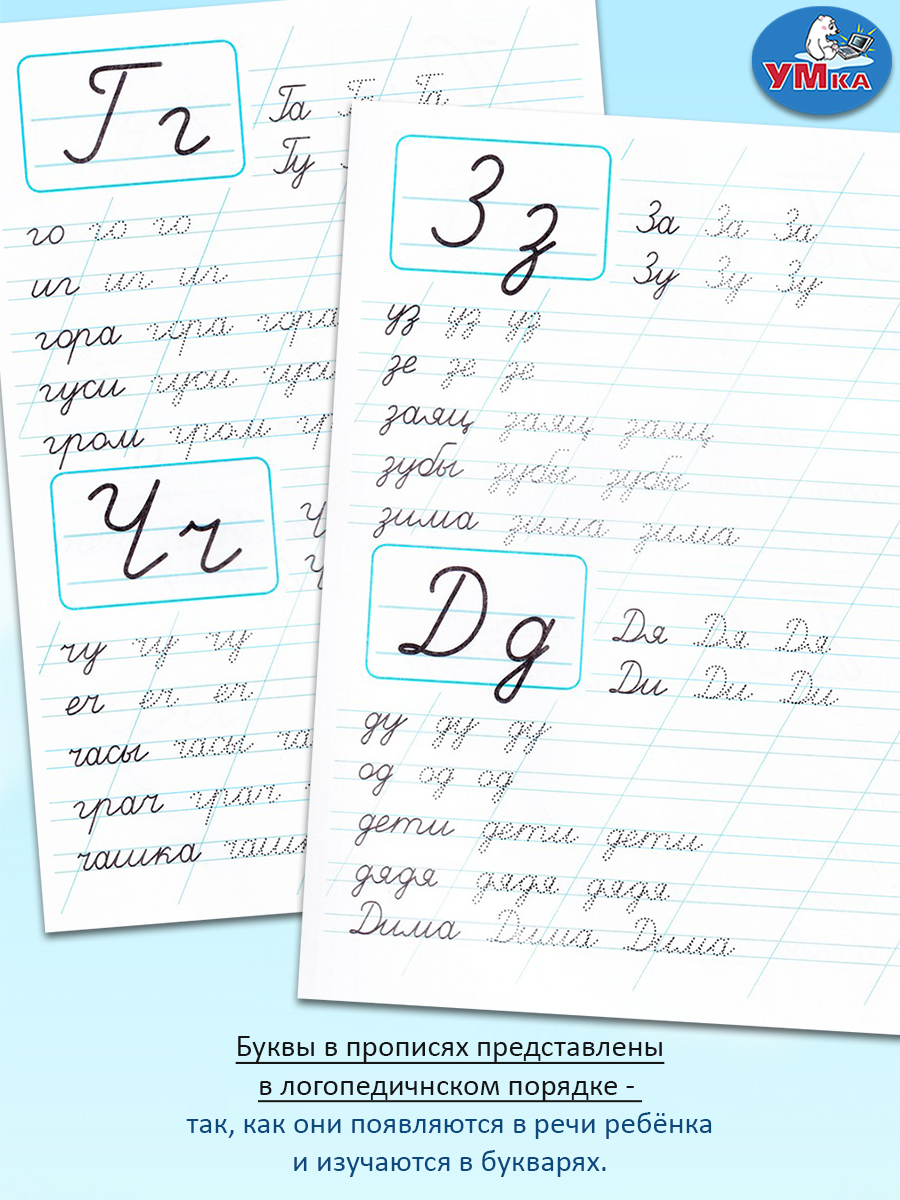 УМКА
Г г
Га Га Га
Гу
го го го
иг иг иг
гора гора гора
гуси гуси гуси
гром гром гр
Ч ч
Ч
Ч
чу чу чу
еч еч еч
часы часы ча
грач грач
чашка чашк
З з
За За За
Зу Зу Зу
уз уз уз
зе зе зе
заяц заяц заяц
зубы зубы зубы
зима зима зима
Д д
Дя Дя Дя
Ди Ди Ди
ду ду ду
од од од
дети дети дети
дядя дядя дядя
Дима Дима Дима
Буквы в прописях представлены
в логопедичнском порядке -
так, как они появляются в речи ребёнка
и изучаются в букварях.